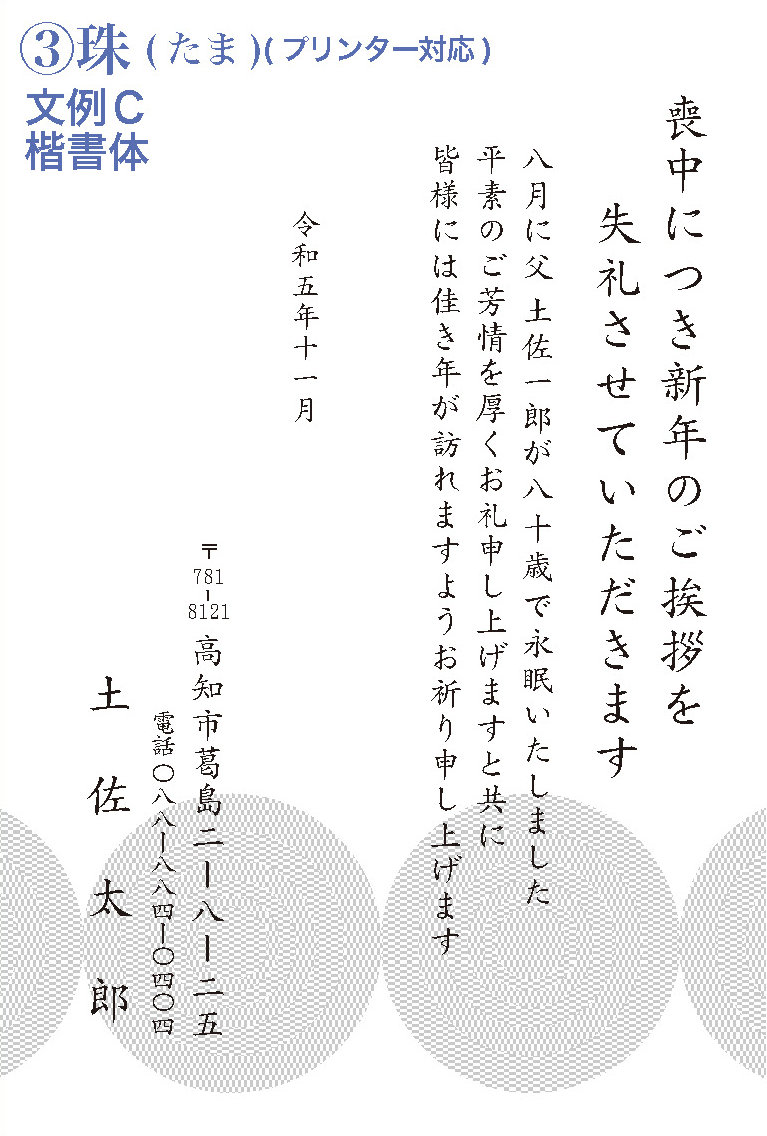 ③珠(たま)(プリンター対応)
文例C
楷書体
喪中につき新年のご挨拶を
失礼させていただきます
八月に父 土佐一郎が八十歳で永眠いたしました
平素のご芳情を厚くお礼申し上げますと共に
皆様には佳き年が訪れますようお祈り申し上げます
令和五年十一月
〒781-8121高知市葛島二ー八ー二五
電話〇八八ー八八四ー〇四〇四
土佐太郎